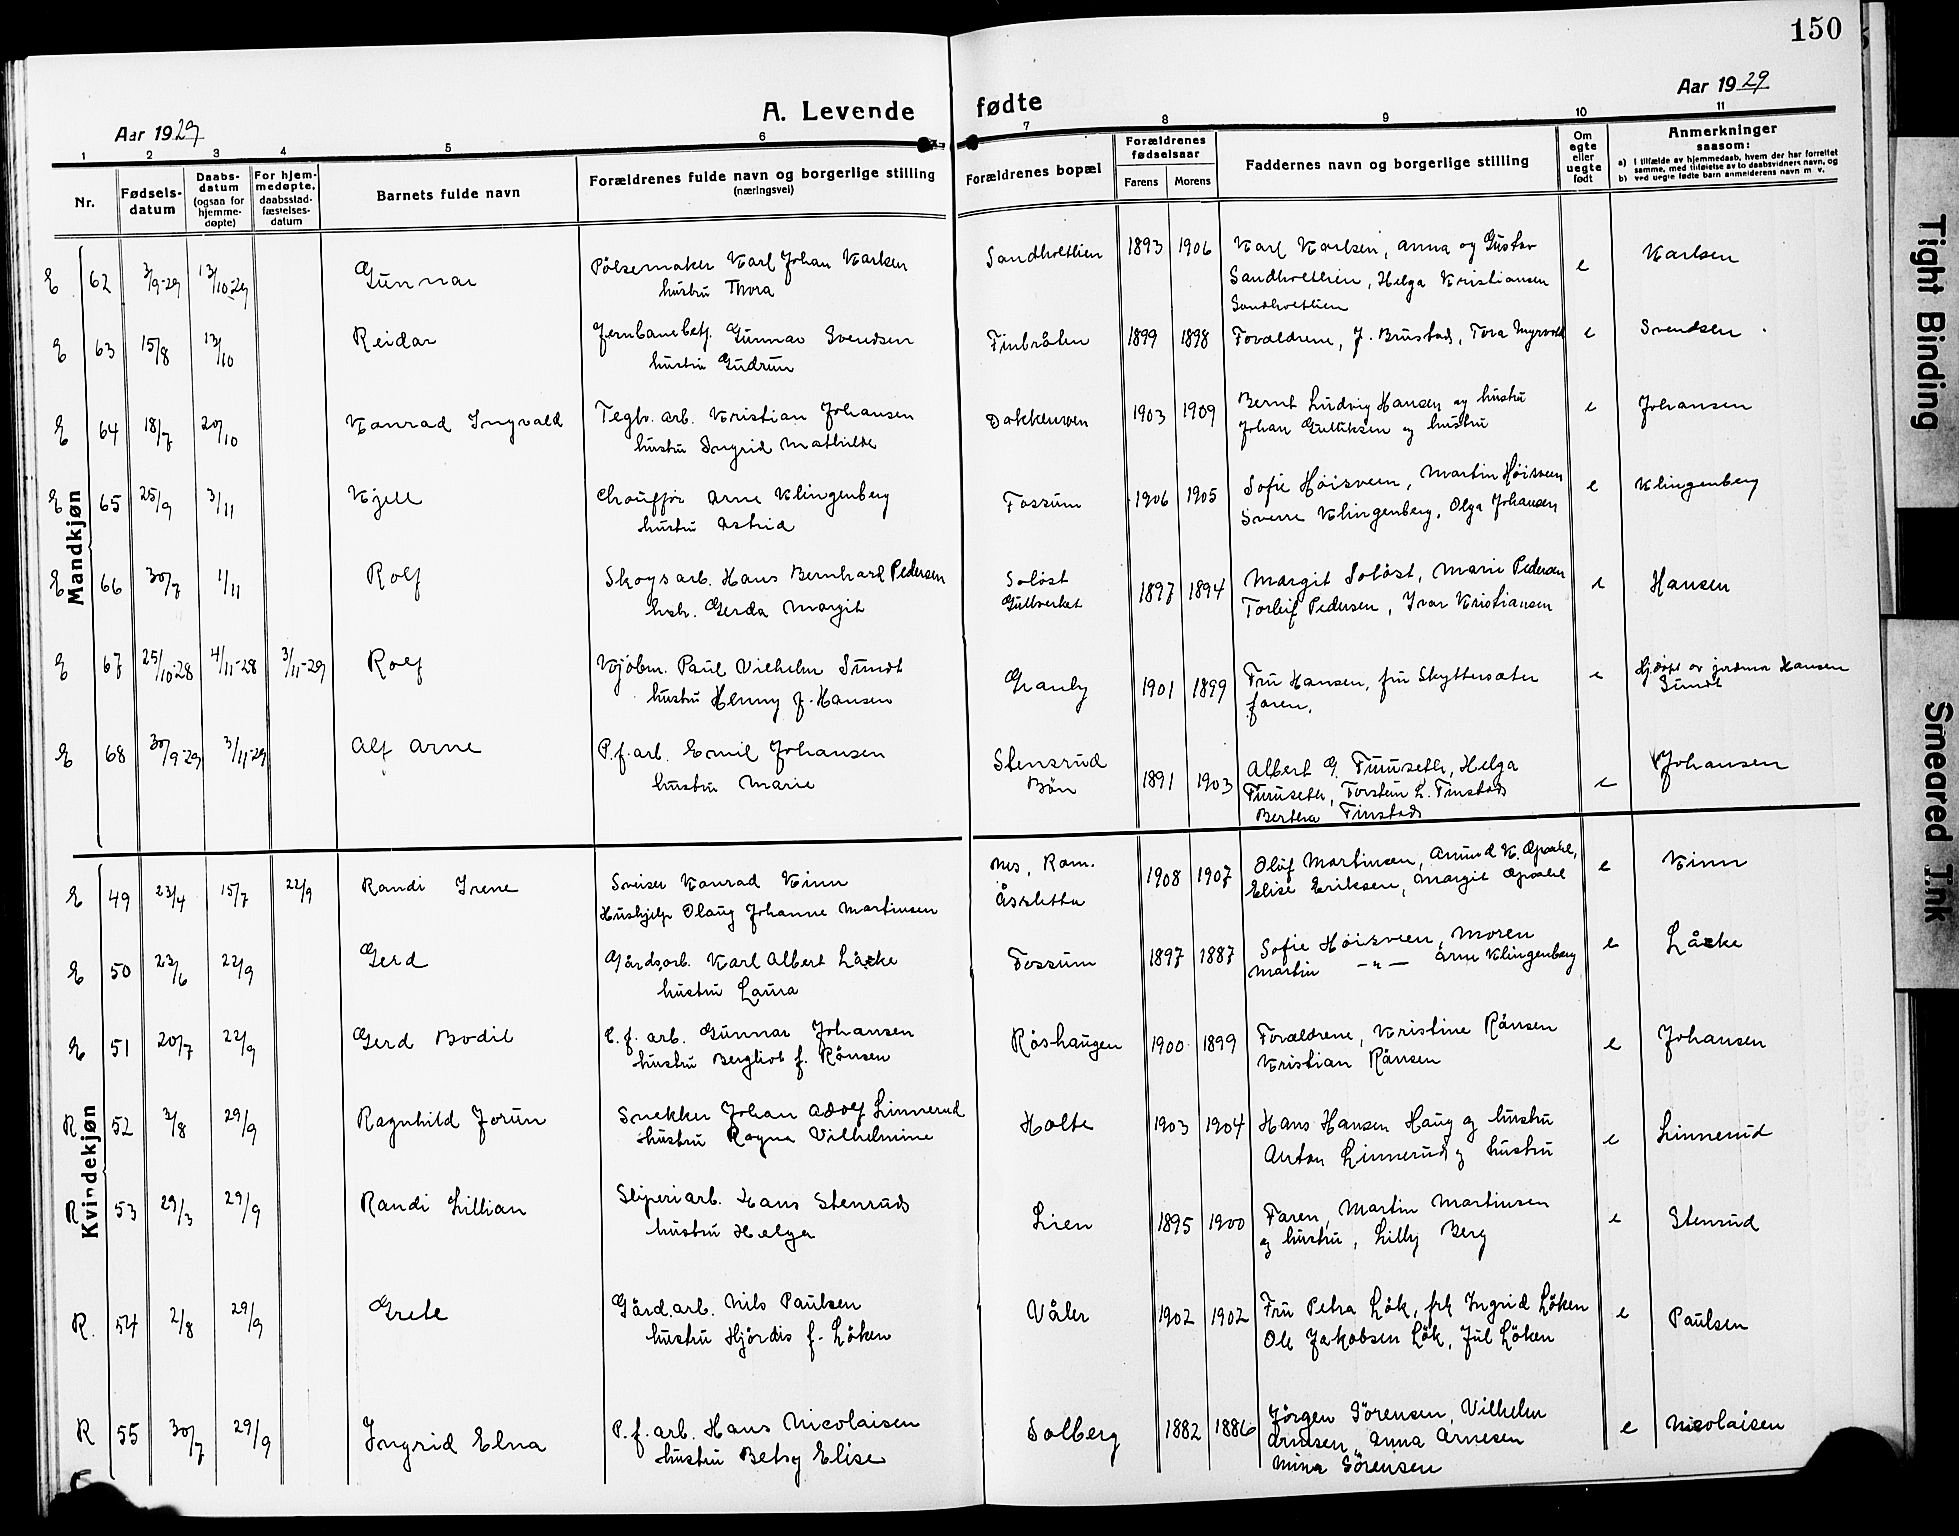 150
Aar 1929
A. Levende fødte
Aar 1929
1 2 3 4 5 6 7 8 9 10 11
Nr.
Fødsels-datum
Daabs-datum (ogsaa for hjemme-døpte)
For hjem-medøpte, daabsstad-fæstelses-datum
Barnets fulde navn
Forældrenes fulde navn og borgerlige stilling (næringsvei)
Forældrenes bopæl
Forældrenes fødselsaar
Farens Morens
Faddernes navn og borgerlige stilling
Om egte eller uegte født
Anmerkninger saasom:
a) i tilfælde av hjemmedaab, hvem der har forrettet samme, med tilføielse av to daabsvidners navn, og
b) ved uegte fødte barn anmelderens navn m. v.
Mandkjøn
E 62 3/9-29 13/10-29 Gunnar Pølsemaker Karl Johan Karlsen Sandholtlien 1893 1906 Karl Karlsen, Anna og Gustav e Karlsen
hustru Thora Sandholtlien, Helga Kristiansen
Sandholtlien
E 63 15/8 13/10 Reidar Jernbanebetj. Gunnar Svendsen Finbråten 1899 1898 Forældrene, J. Brustad, Tora Myrvold e Svendsen
hustru Gudrun
E 64 18/7 20/10 Konrad Ingvald Teglv. arb. Kristian Johansen Dokkenveien 1903 1909 Bernt Ludvig Hansen og hustru e Johansen
hustru Ingrid Mathilde Johan Gulliksen og hustru
E 65 25/9 3/11 Kjell Chauffør Arne Klingenberg Fossum 1906 1905 Sofie Høisveen, Martin Høisveen e Klingenberg
hustru Astrid Sverre Klingenberg, Olga Johansen
E 66 30/7 1/11 Rolf Skogsarb. Hans Bernhard Pedersen Soløst 1897 1894 Margit Soløst, Marie Pedersen e Hansen
hsh. Gerda Margit Gullverket Torleif Pedersen, Ivar Kristiansen
E 67 25/10-28 4/11-28 3/11-29 Rolf Kjøbm. Paul Vilhelm Sundt Granly 1901 1899 Fru Hansen, fru Skyttersæter e Hjdøpt av jordmor Hansen
hustru Henny f. Hansen faren. Sundt
E 68 30/9-29 3/11-29 Alf Arne P.f. arb. Emil Johansen Stensrud 1891 1903 Albert G. Furuseth, Helga e Johansen
hustru Marie Bøn Furuseth, Torstein L. Finstad
Bertha Finstad
Kvindekjøn
E 49 23/4 15/7 22/9 Randi Irene Sveiser Konrad Kinn Nes, Rom. 1908 1907 Oluf Martinsen, Amund K. Opsahl, e Kinn
Hushjelp Olaug Johanne Martinsen Åssletta Elise Eriksen, Margit Opsahl
E 50 23/6 22/9 Gerd Gårdsarb. Karl Albert Låcke Fossum 1897 1887 Sofie Høisveen, Moren e Låcke
hustru Laura Martin -"- Arne Klingenberg
E 51 20/7 22/9 Gerd Bodil C. f. arb. Gunnar Johansen Røshaugen 1900 1899 Forældrene, Kristine Rånsen e Johansen
hustru Bergliot f. Rånsen Kristian Rånsen
R 52 3/8 29/9 Ragnhild Jorun Snekker Johan Adolf Linnerud Holte 1903 1904 Hans Hansen Haug og hustru e Linnerud
hustru Ragna Vilhelmine Anton Linnerud og hustru
R 53 29/3 29/9 Randi Lillian Sliperiarb. Hans Stensrud Lien 1895 1900 Faren, Martin Martinsen e Stensrud
hustru Helga og hustru, Lilly Berg
R. 54 2/8 29/9 Grete Gård.arb. Nils Paulsen Våler 1902 1902 Fru Petra Løk, frk Ingrid Løken e Paulsen
hustru Hjørdis f. Løken Ole Jakobsen Løk, Jul Løken
R 55 30/7 29/9 Ingrid Elna P.f. arb. Hans Nicolaisen Solberg 1882 1886 Jørgen Sørensen, Vilhelm e Nicolaisen
hustru Betsy Elise Arnesen, Anna Arnesen
Mina Sørensen
Tight Binding
Smeared Ink